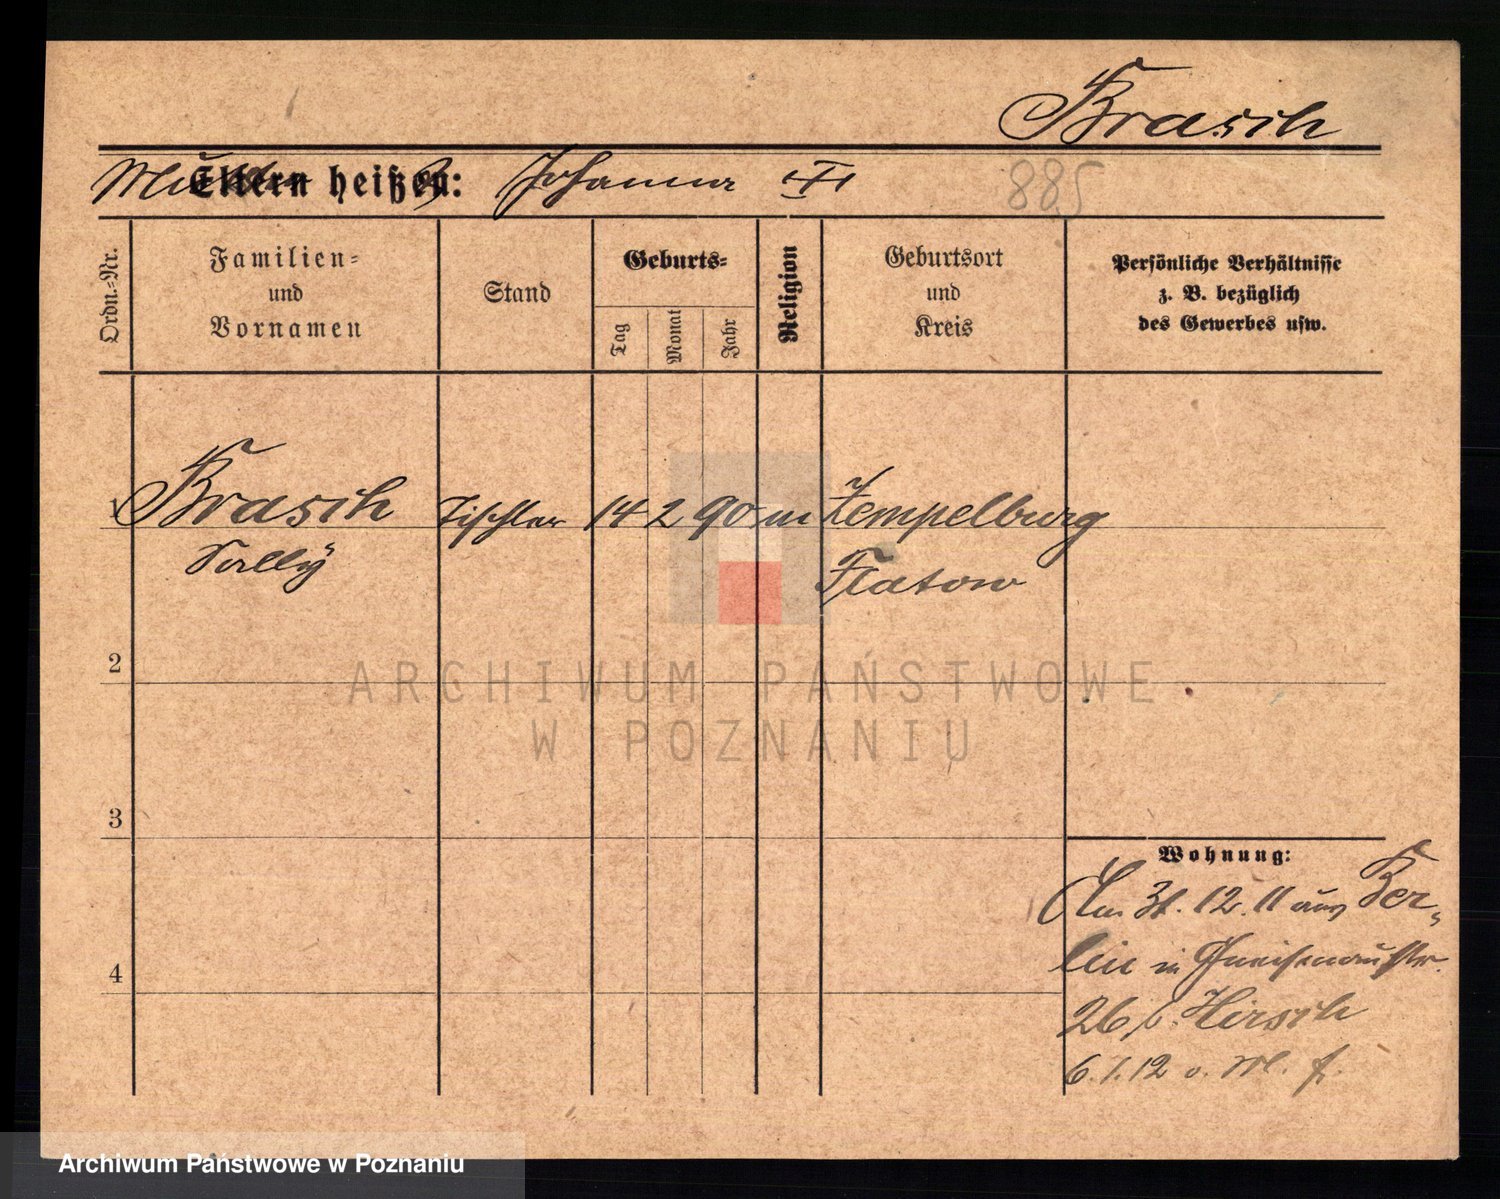 Brasch
Mutter heißt: Johanna
885
Ordn.-Nr.
Familien-
und
Vornamen
Stand
Geburts-
Tag
Monat
Jahr
Religion
Geburtsort
und
Kreis
Persönliche Verhältnisse
z. B. bezüglich
des Gewerbes usw.
1 Brasch Tischler 14 2 90 m Zempelburg
Sally Flatow
2
3
4
Wohnung:
Am 31. 12. 11 aus Ber-
lin in Gneisenaustr.
26 b. Hirsch
6. 1. 12 v. M. f.
ARCHIWUM PAŃSTWOWE
W POZNANIU
Archiwum Państwowe w Poznaniu